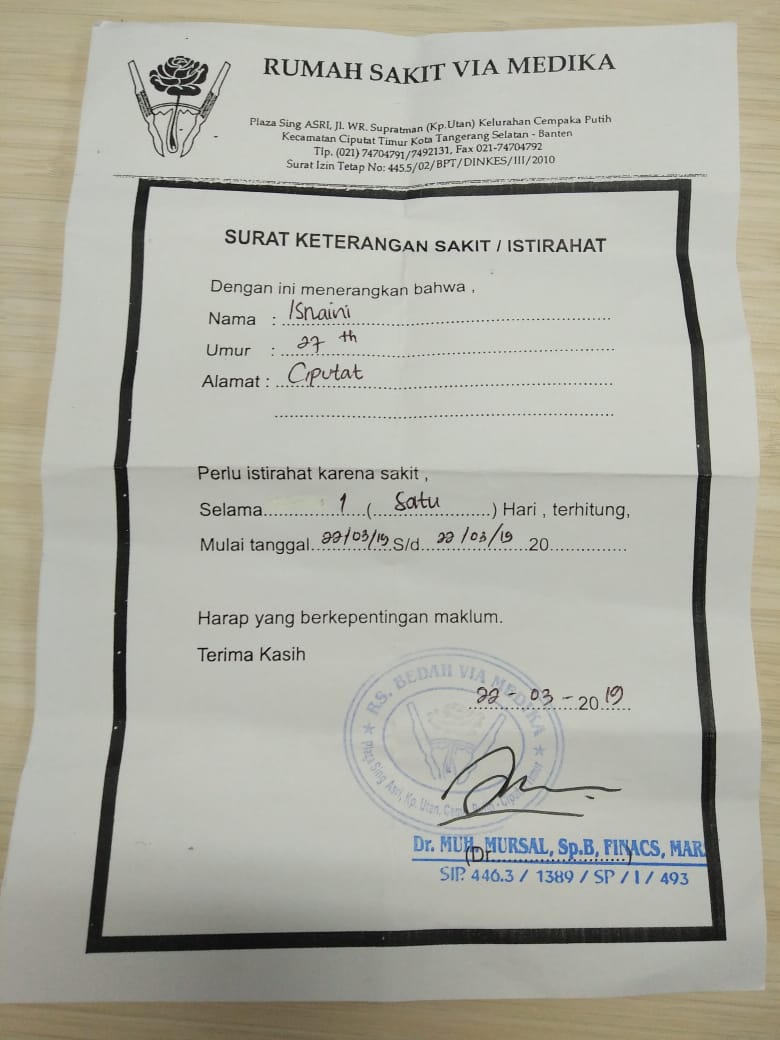 RUMAH SAKIT VIA MEDIKA
Plaza Sing ASRI, Jl. WR. Supratman (Kp.Utan) Kelurahan Cempaka Putih
Kecamatan Ciputat Timur Kota Tangerang Selatan - Banten
Tlp. (021) 74704791/7492131, Fax 021-74704792
Surat Izin Tetap No: 445.5/02/BPT/DINKES/III/2010
SURAT KETERANGAN SAKIT / ISTIRAHAT
Dengan ini menerangkan bahwa ,
Nama : Isnaini
Umur : 27 th
Alamat : Ciputat
Perlu istirahat karena sakit ,
Selama 1 ( Satu ) Hari , terhitung,
Mulai tanggal 22/03/19 S/d 22/03/19 20
Harap yang berkepentingan maklum.
Terima Kasih
22 - 03 - 2019
RS. BEDAH VIA MEDIKA
Plaza Sing Asri, Kp. Utan,
Dr. MUH. MURSAL, Sp.B, FINACS, MAR
(Dr. )
SIP. 446.3 / 1389 / SP / I / 493